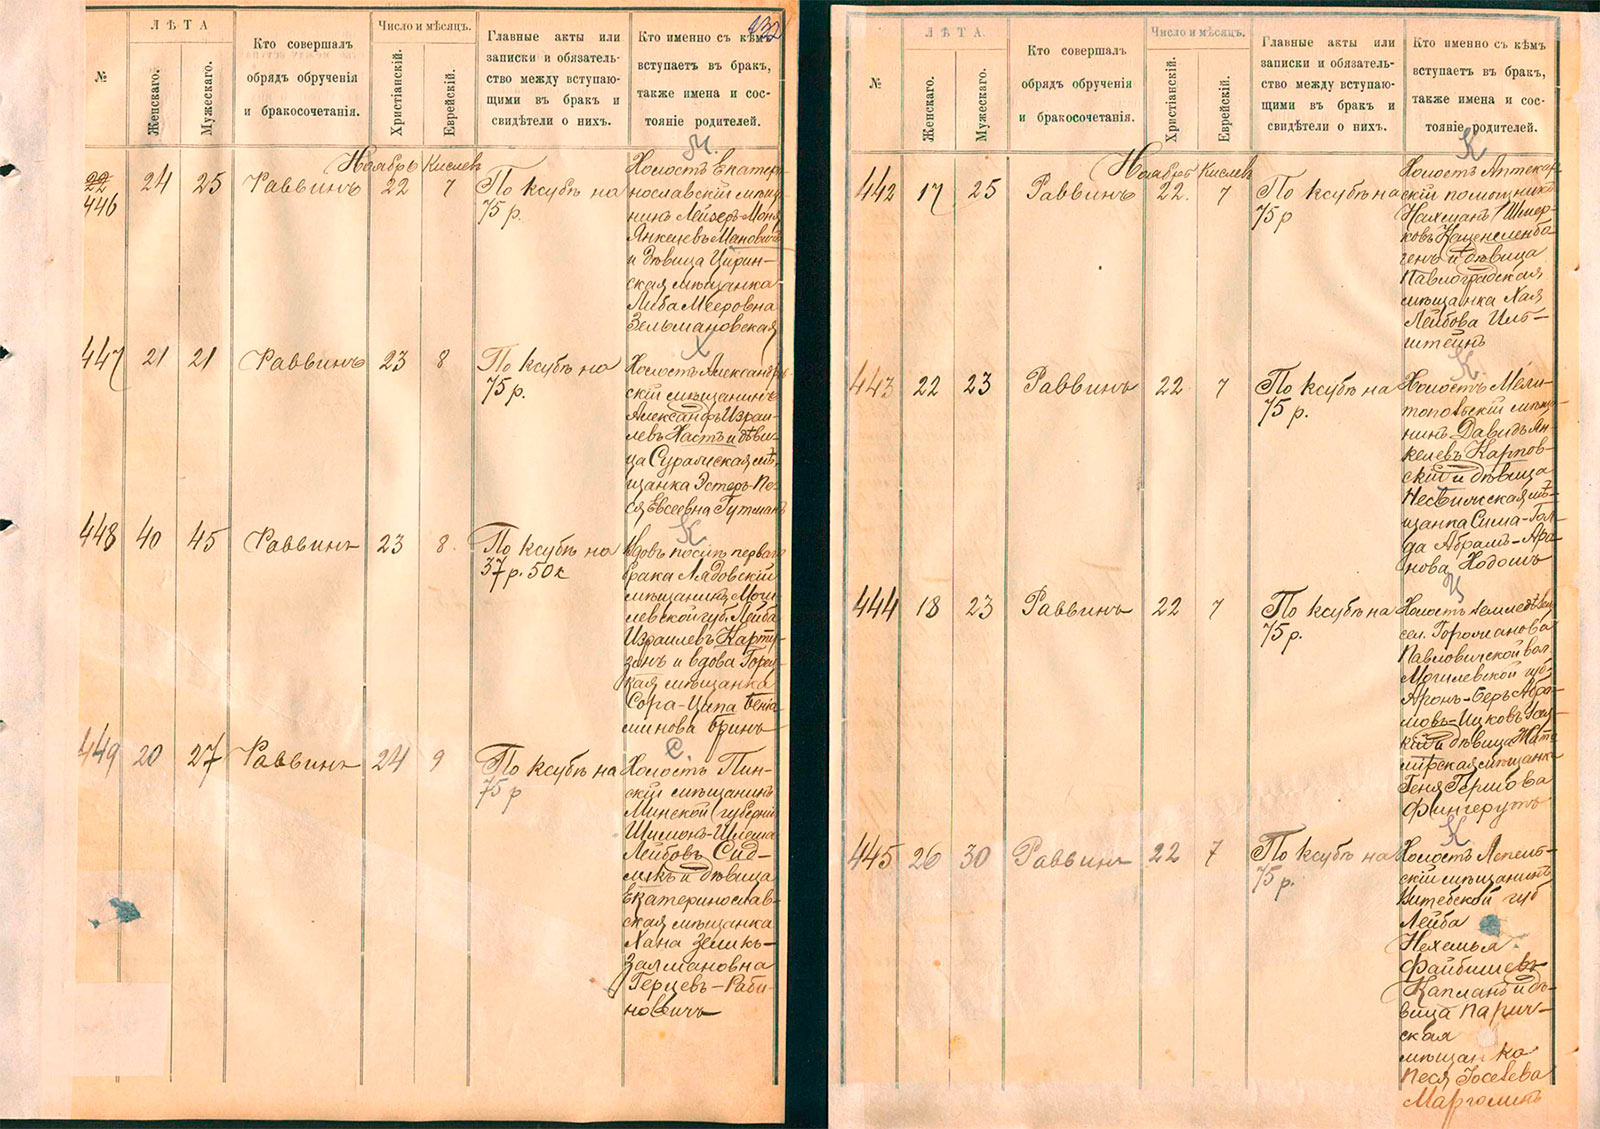 132
№
ЛѢТА
Женскаго.
Мужескаго.
Кто совершалъ
обрядъ обрученія
и бракосочетанія.
Число и мѣсяцъ.
Христіанскій.
Еврейскій.
Главные акты или
записки и обязатель-
ство между вступаю-
щими въ бракъ и
свидѣтели о нихъ.
Кто именно съ кѣмъ
вступаетъ въ бракъ,
также имена и сос-
тояніе родителей.
М.
Ноябрь Кислев
22
446
24 25 Раввинъ 22 7
По ксубѣ на
75 р.
Холостъ Екатери-
нославскій мѣща-
нинъ Лейзеръ-Моня
Янкелевъ Мановичъ
и дѣвица Цирин-
ская мѣщанка
Либа Мееровна
Зельмановская
Х
447 21 21 Раввинъ 23 8
По ксубѣ на
75 р.
Холостъ Александрій-
скій мѣщанинъ
Александръ Израи-
левъ Хастъ и дѣви-
ца Суражская мѣ-
щанка Эстеръ-Пе-
ся Евсеевна Гутманъ
К
448 40 45 Раввинъ 23 8.
По ксубѣ на
37 р. 50 к
Вдовъ послѣ перваго
брака Лядовскій
мѣщанинъ Моги-
левской губ. Лейба
Израилевъ Карту-
зенъ и вдова
мѣщанка
Сора-Ципа Бенiа-
минова Бринъ
С.
449 20 27 Раввинъ 24 9
По ксубѣ на
75 р
Холостъ Пин-
скій мѣщанинъ
Минской губерніи
Шимонъ-Шлема
Лейбовъ Сид-
ликъ и дѣвица
Екатеринослав-
ская мѣщанка
Хана Зеликъ-
Залмановна
Герцевъ-Раби-
новичъ
№
ЛѢТА.
Женскаго.
Мужескаго.
Кто совершалъ
обрядъ обрученія
и бракосочетанія.
Число и мѣсяцъ.
Христіанскій.
Еврейскій.
Главные акты или
записки и обязатель-
ство между вступаю-
щими въ бракъ и
свидѣтели о нихъ.
Кто именно съ кѣмъ
вступаетъ въ бракъ,
также имена и сос-
тояніе родителей.
К
Ноябрь Кислев
442 17 25 Раввинъ 22. 7
По ксубѣ на
75 р
Холостъ Аптекар-
скій помощникъ
Нахманъ Шмер-
ковъ Каценеленбо-
генъ и дѣвица
Павлоградская
мѣщанка Хая
Лейбова Иль-
штейнъ
К.
443 22 23 Раввинъ 22 7
По ксубѣ на
75 р.
Холостъ Мели-
топольскій мѣща-
нинъ Давидъ Ян-
келевъ Карпов-
скій и дѣвица
Несвижская мѣ-
щанка Сима-Гол-
да Абрамъ-Аро-
нова Ходошъ
У
444 18 23 Раввинъ 22 7
По ксубѣ на
75 р.
Холостъ земледѣлецъ
сел.
Павловичской вол.
Могилевской губ.
Аронъ-Беръ Абра-
мовъ-Ицковъ
и дѣвица Жито-
мирская мѣщанка
Геня Гершова
Фингерутъ
К
445 26 30 Раввинъ 22 7
По ксубѣ на
75 р.
Холостъ Лепель-
скій мѣщанинъ
Витебской губ
Лейба
Нехемья
Файбишевъ
Капланъ и дѣ-
вица Парич-
ская
мѣщанка
Песя Іосеева
Марголинъ